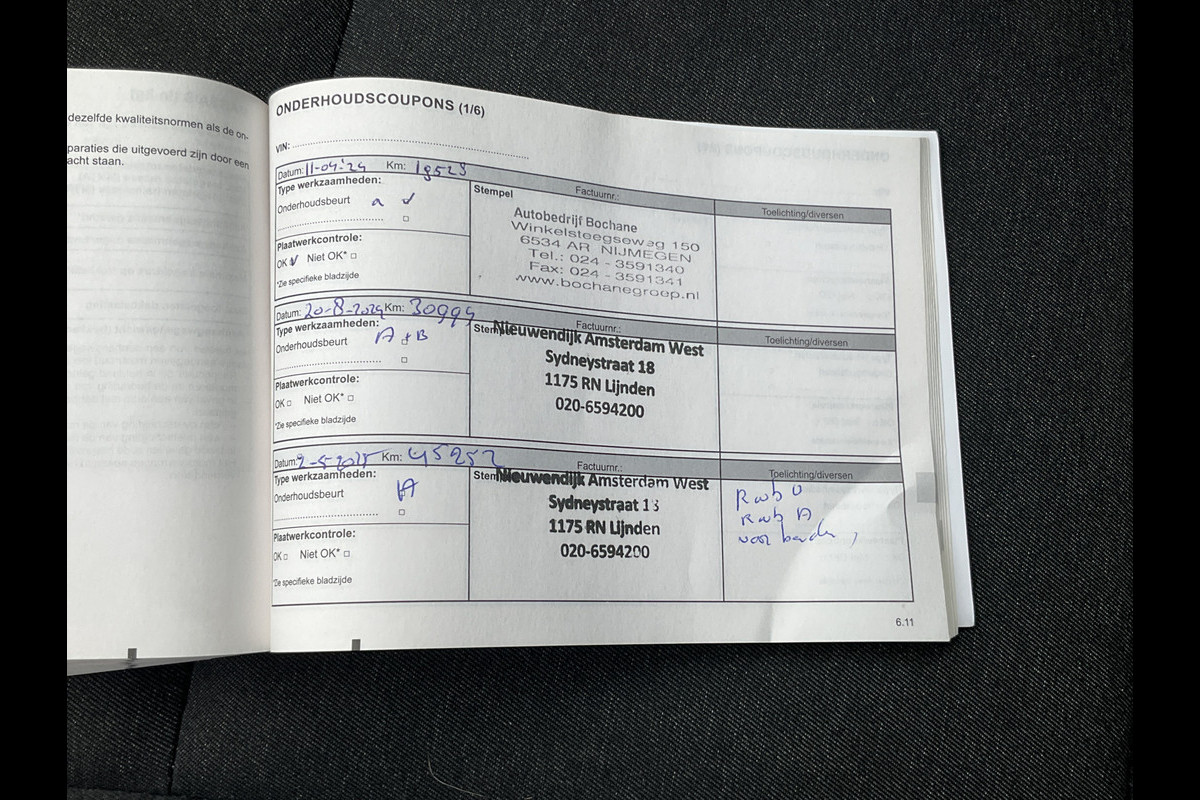 dezelfde kwaliteitsnormen als de on-
paraties die uitgevoerd zijn door een
acht staan.
ONDERHOUDSCOUPONS (1/6)
VIN:
Datum: 11-04-'24 Km: 19528
Type werkzaamheden:
Onderhoudsbeurt a
Plaatwerkcontrole:
OK Niet OK*
*Zie specifieke bladzijde
Stempel Factuurnr.:
Autobedrijf Bochane
Winkelsteegseweg 150
6534 AR NIJMEGEN
Tel.: 024 - 3591340
Fax: 024 - 3591341
www.bochanegroep.nl
Toelichting/diversen
Datum: 20-8-2024 Km: 30994
Type werkzaamheden:
Onderhoudsbeurt A + B
Plaatwerkcontrole:
OK Niet OK*
*Zie specifieke bladzijde
Factuurnr.:
Nieuwendijk Amsterdam West
Sydneystraat 18
1175 RN Lijnden
020-6594200
Toelichting/diversen
Datum: 2-5-2025 Km: 45252
Type werkzaamheden:
Onderhoudsbeurt A
Plaatwerkcontrole:
OK Niet OK*
*Zie specifieke bladzijde
Factuurnr.:
Nieuwendijk Amsterdam West
Sydneystraat 18
1175 RN Lijnden
020-6594200
Toelichting/diversen
6.11